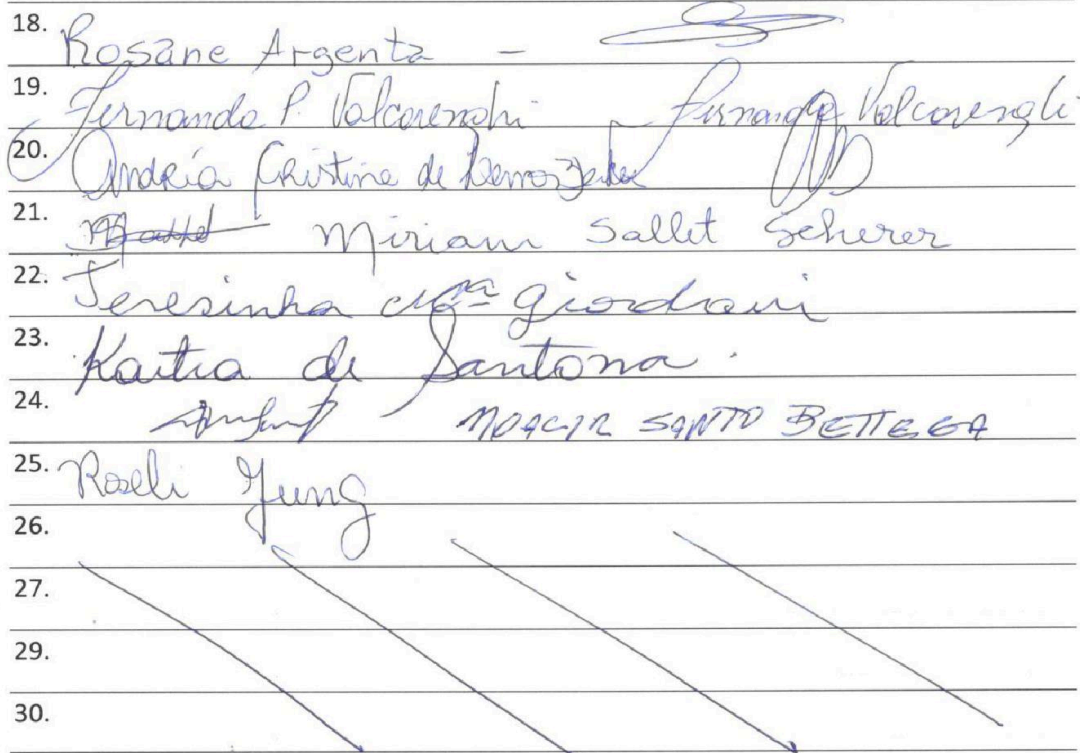 18. Rosane Argenta -
19. Fernanda P. Valcarenghi Fernanda Valcarenghi
20. Andréia Cristine de
21. Miriam Sallet Scherer
22. Teresinha Mª Giordani
23. Kaitia de Santana.
24. MOACIR SANTO BETTEGA
25. Roseli Jung
26.
27.
29.
30.